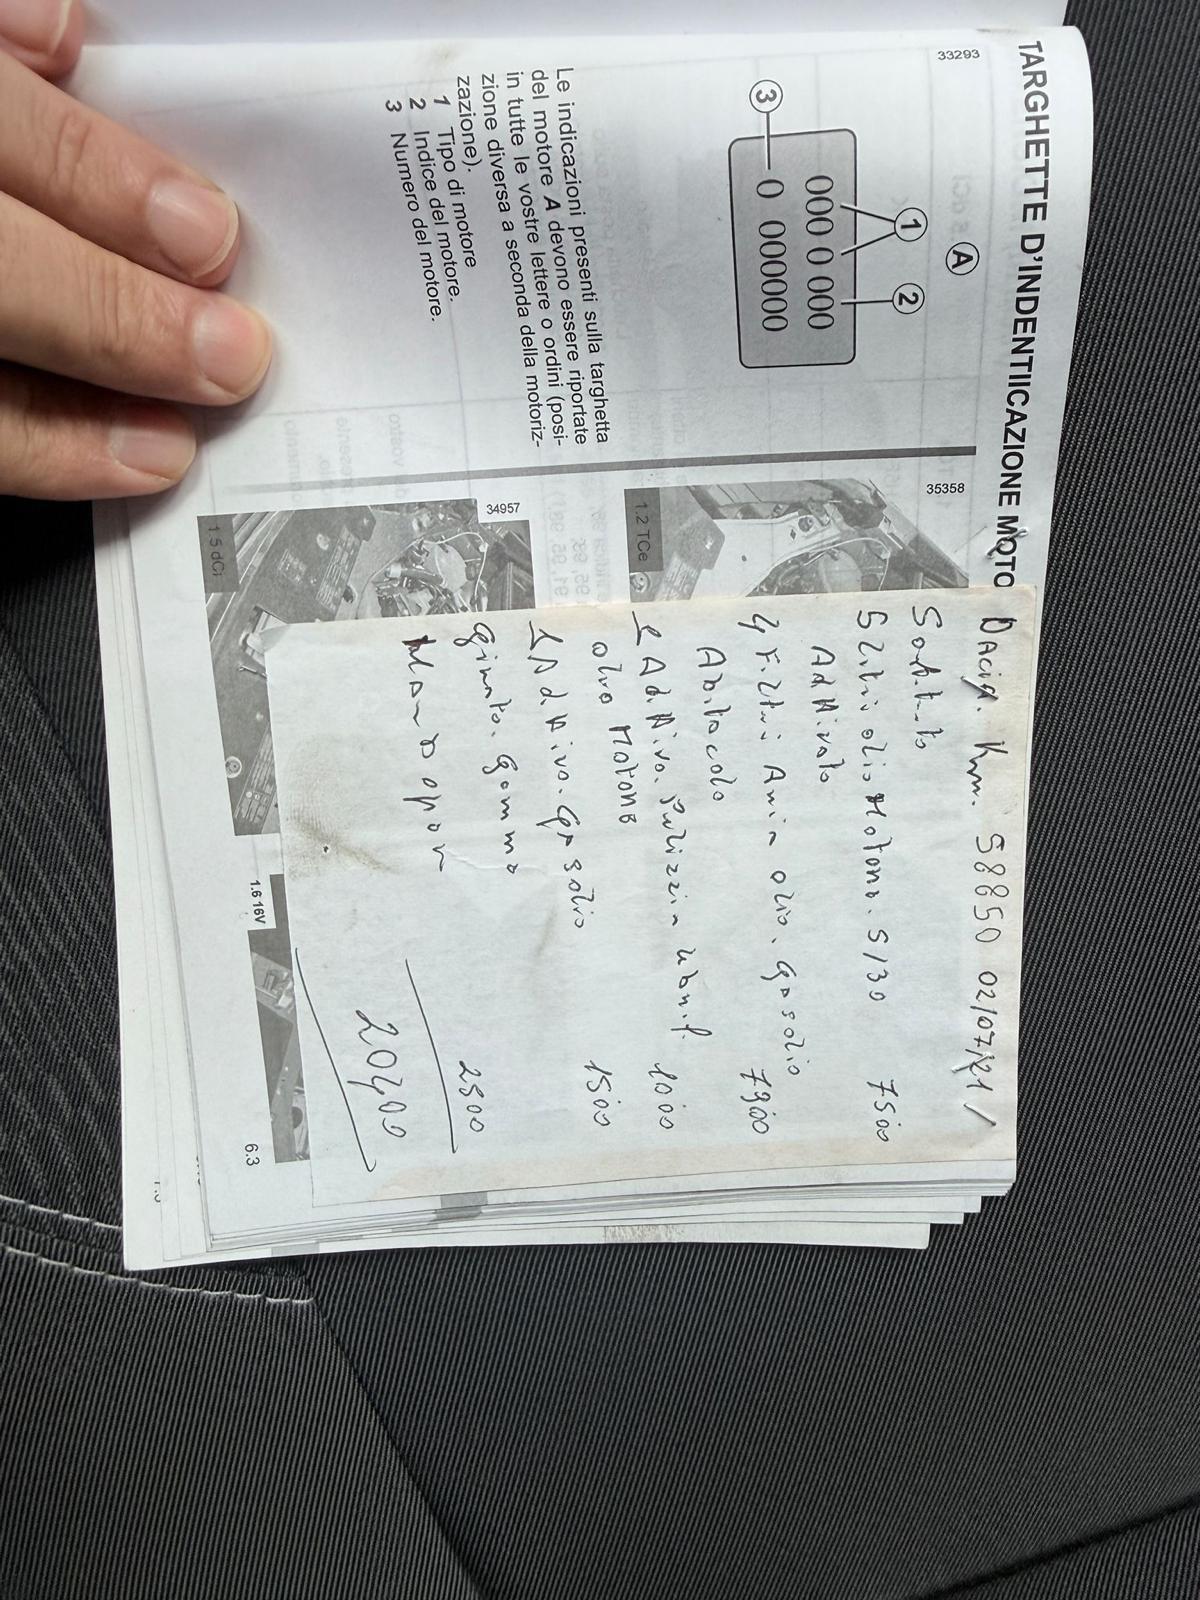 TARGHETTE D'INDENTIICAZIONE MOTO
33293
A
1
2
000 0 000
0 000000
3
Le indicazioni presenti sulla targhetta
del motore A devono essere riportate
in tutte le vostre lettere o ordini (posi-
zione diversa a seconda della motoriz-
zazione).
1 Tipo di motore
2 Indice del motore.
3 Numero del motore.
35358
1.2 TCe
34957
1.5 dCi
1.6 16V
6.3
Dacia. Km. 58850 02/07/21
5 litri olio Motore. 5/30 7500
4 Filtri Aria olio. gasolio
Abitacolo 7900
olio Motore 1000
1 Additivo. gasolio 1500
gomme
2500
20400